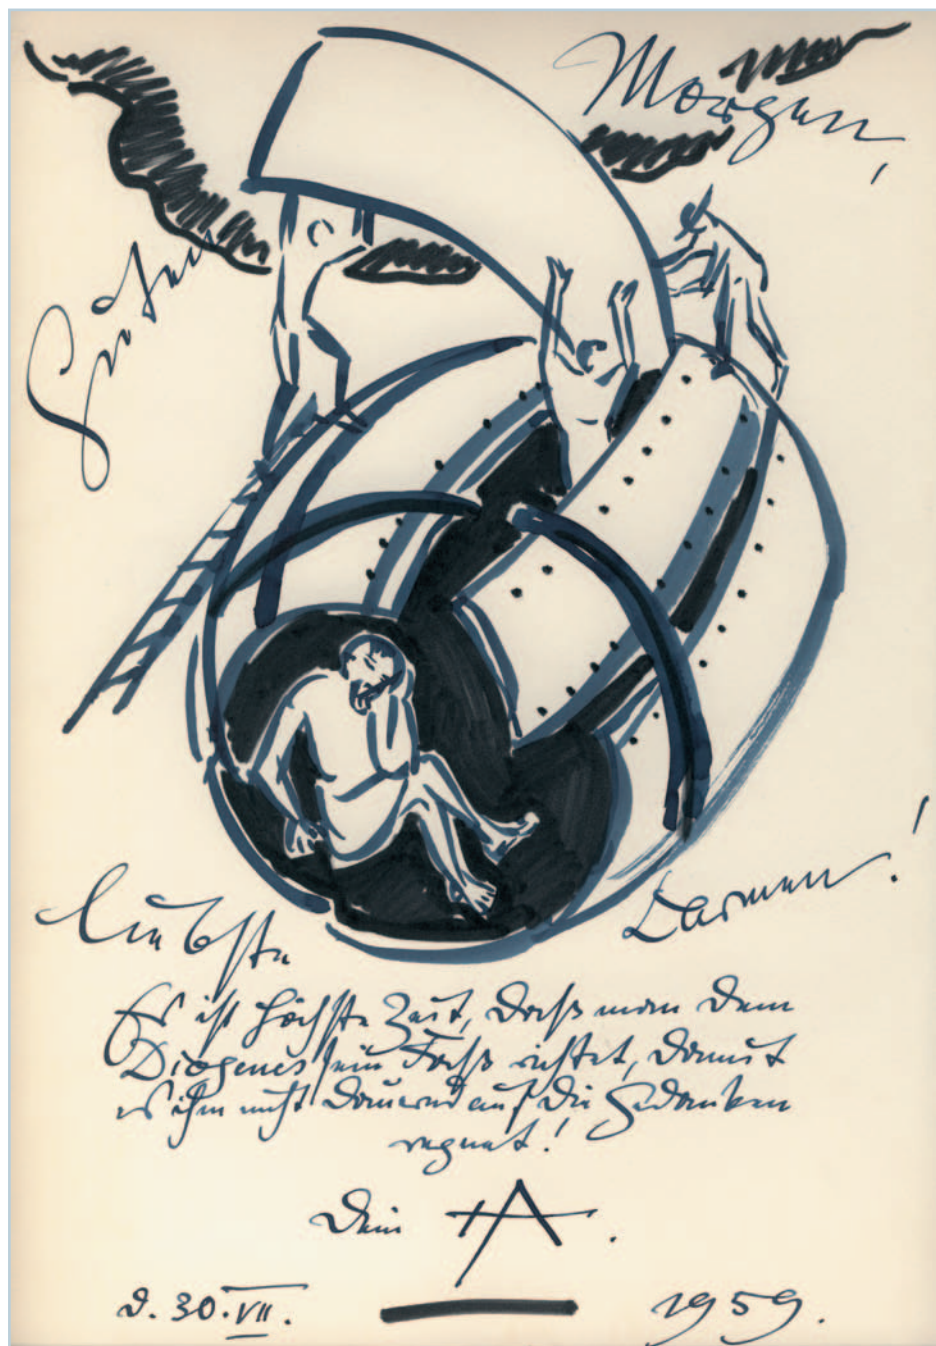 Guten
Morgen,
liebste
Carmen!
Es ist höchste Zeit, daß man dem
Diogenes sein Faß richtet, damit
es ihm nicht dauernd auf die Gedanken
regnet!
Dein
d. 30. VII. 1959.